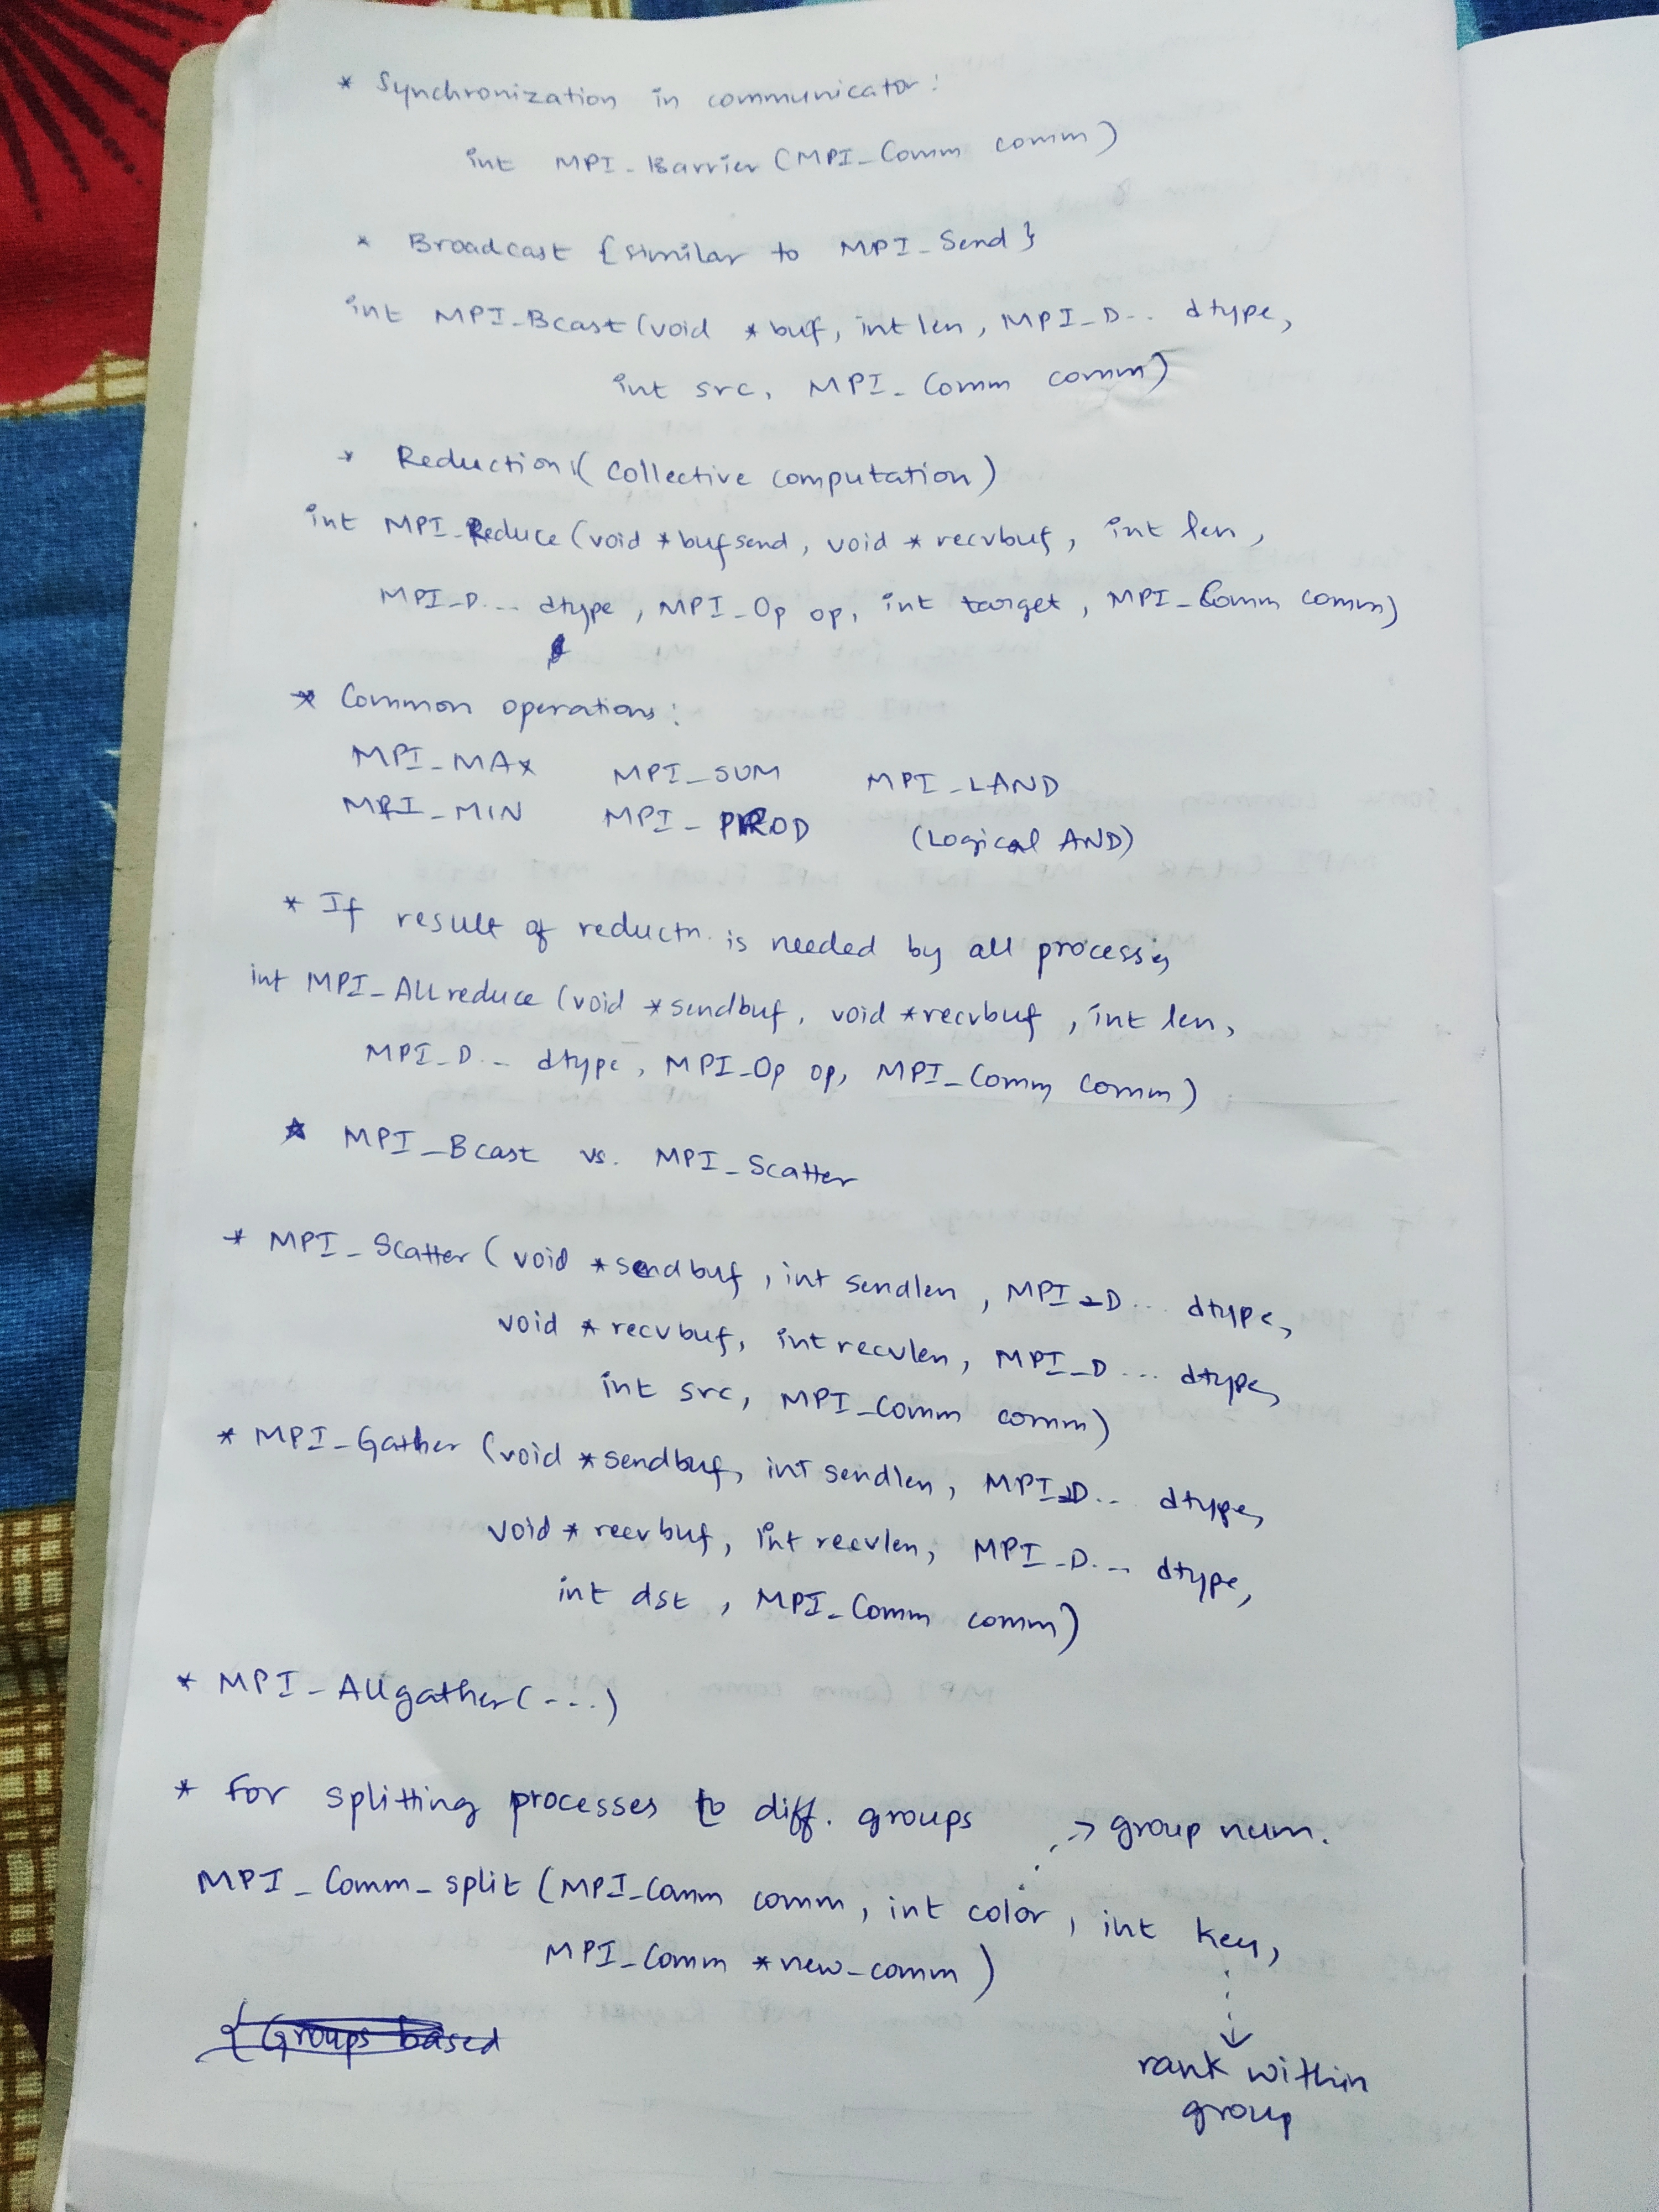 * Synchronization in communicator:
int MPI_Barrier (MPI_Comm comm)
* Broadcast {similar to MPI_Send}
int MPI_Bcast (void *buf, int len, MPI_D.. dtype,
int src, MPI_Comm comm)
* Reduction (Collective computation)
int MPI_Reduce (void *bufsend, void *recvbuf, int len,
MPI_D... dtype, MPI_Op op, int target, MPI_Comm comm)
* Common operations:
MPI_MAX MPI_SUM MPI_LAND
MPI_MIN MPI_PROD (Logical AND)
* If result of reductn. is needed by all process's
int MPI_Allreduce (void *sendbuf, void *recvbuf, int len,
MPI_D... dtype, MPI_Op op, MPI_Comm comm)
* MPI_Bcast vs. MPI_Scatter
* MPI_Scatter (void *sendbuf, int sendlen, MPI_D... dtype,
void *recvbuf, int recvlen, MPI_D... dtype,
int src, MPI_Comm comm)
* MPI_Gather (void *sendbuf, int sendlen, MPI_D... dtype,
void *recvbuf, int recvlen, MPI_D... dtype,
int dst, MPI_Comm comm)
* MPI_Allgather(---)
* for splitting processes to diff. groups -> group num.
MPI_Comm_split (MPI_Comm comm, int color, int key,
MPI_Comm *new_comm)
{Groups based
rank within
group